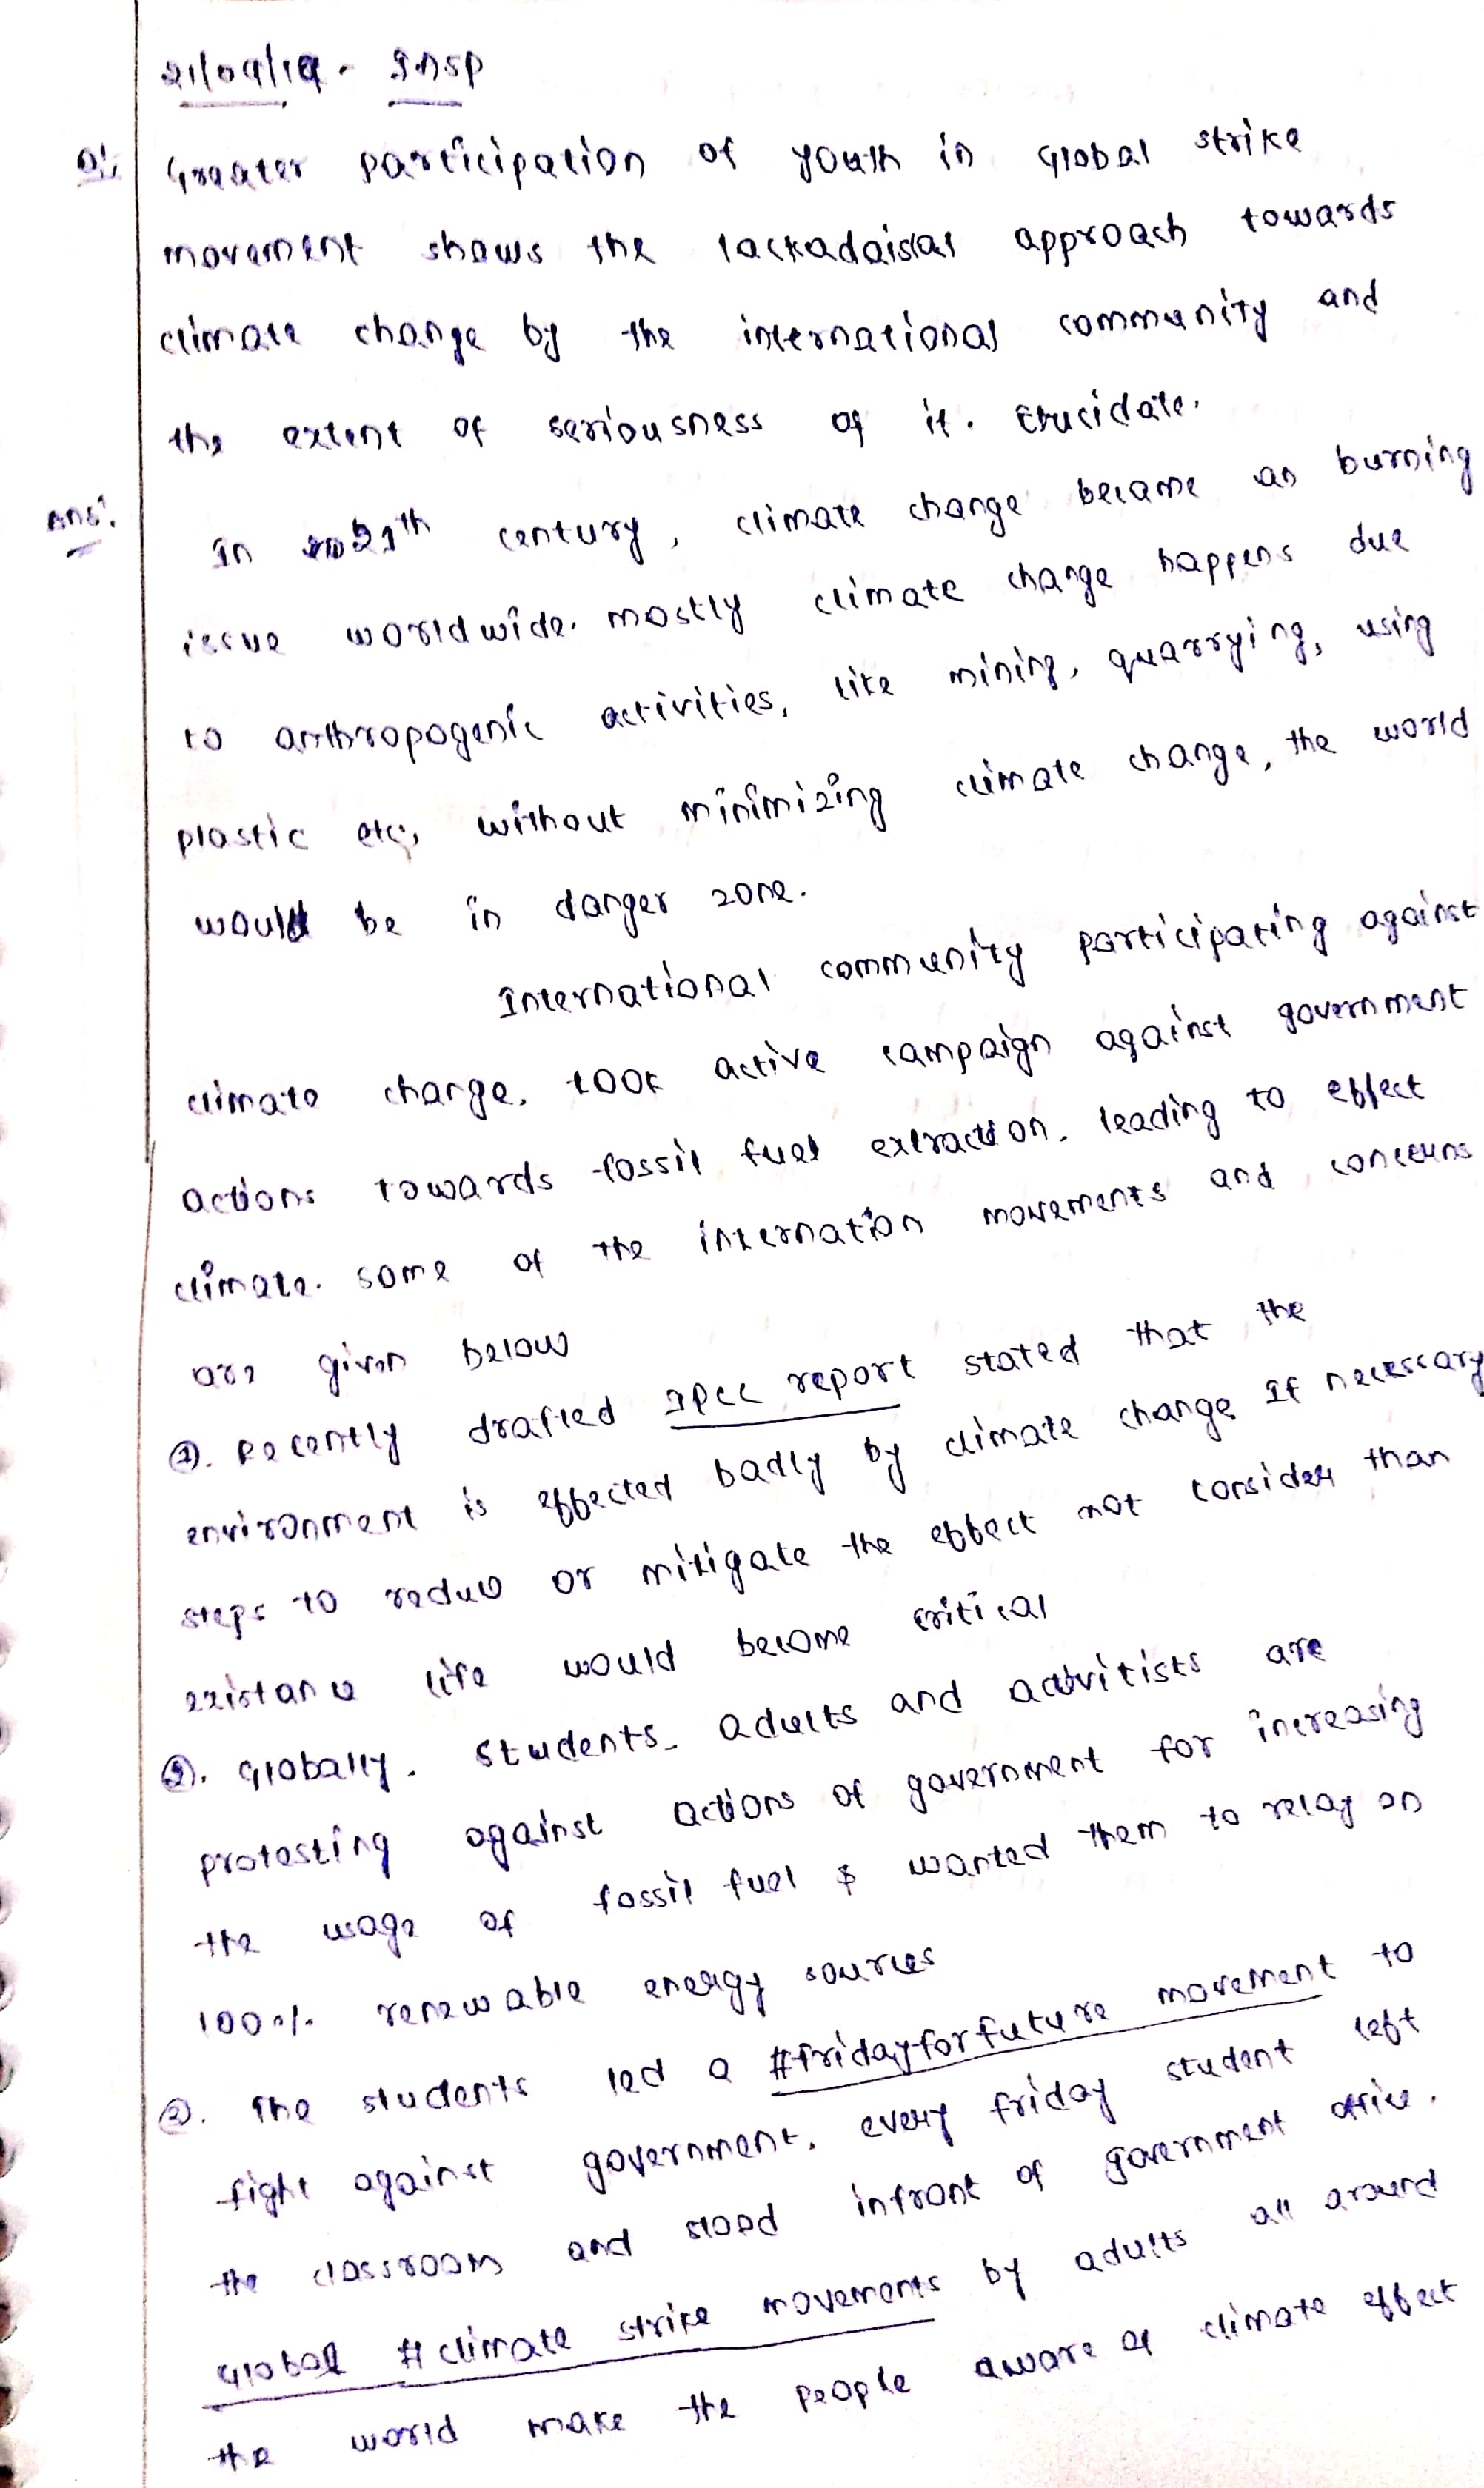 21/09/19 - INSP
Q1. Greater participation of youth in Global strike
movement shows the lackadaisial approach towards
climate change by the international community and
the extent of seriousness of it. Elucidate.
Ans: In 21th century, climate change became an burning
issue worldwide. mostly climate change happens due
to anthropogenic activities, like mining, quarrying, using
plastic etc., without minimizing climate change, the world
would be in danger zone.
International community participating against
climate change, took active campaign against government
actions towards fossil fuel extraction, leading to effect
climate. some of the internation movements and concerns
are given below
①. Recently drafted IPCC report stated that the
environment is effected badly by climate change If necessary
steps to reduce or mitigate the effect not consider than
existance life would become critical
②. Globally, students, adults and activitists are
protesting against actions of government for increasing
the usage of fossil fuel & wanted them to relay on
100% renewable energy sources
③. The students led a #fridayforfuture movement to
fight against government, every friday student left
the classroom and stood infront of government office.
Global #climate strike movements by adults all around
the world make the people aware of climate effect